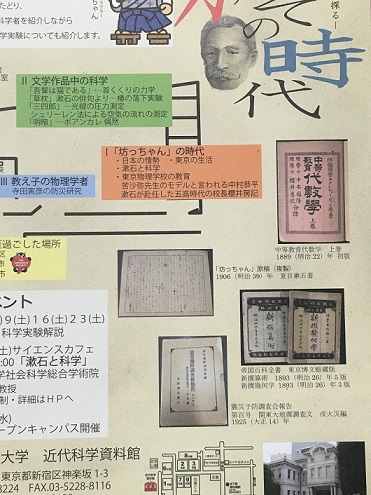 たどり、
科学者を紹介しながら
学実験についても紹介します。
ちゃん
探る―
その
時代
Ⅱ 文学作品中の科学
「吾輩は猫である」…首くくりの力学
「草枕」漱石の俳句より…椿の落下実験
「三四郎」…光線の圧力測定
シュリーレン法による空気の流れの測定
「明暗」…ポアンカレ 偶然
Ⅰ「坊っちゃん」の時代
・日本の情勢 ・東京の生活
・漱石と科学
・東京物理学校の教育
苦沙弥先生のモデルと言われる中村恭平
漱石が赴任した五高時代の校長櫻井房記
Ⅲ 教え子の物理学者
寺田寅彦の防災研究
過ごした場所
中等教育代数学 上巻
1889(明治22)年 初版
「坊っちゃん」原稿(複製)
1906(明治39)年 夏目漱石著
帝国百科全書 東京博文館蔵版
新撰算術 1893(明治26)年5版
新撰幾何学 1893(明治26)年3版
震災予防調査会報告
第百号 関東大地震調査文 戊火災編
1925(大正14)年
ベント
9(土)16(土)23(土)
科学実験解説
(土)サイエンスカフェ
:00「漱石と科学」
学社会科学総合学術院
教授
制・詳細はHPへ
(水)
ープンキャンパス開催
大学 近代科学資料館
東京都新宿区神楽坂1-3
8224 FAX.03-5228-8116